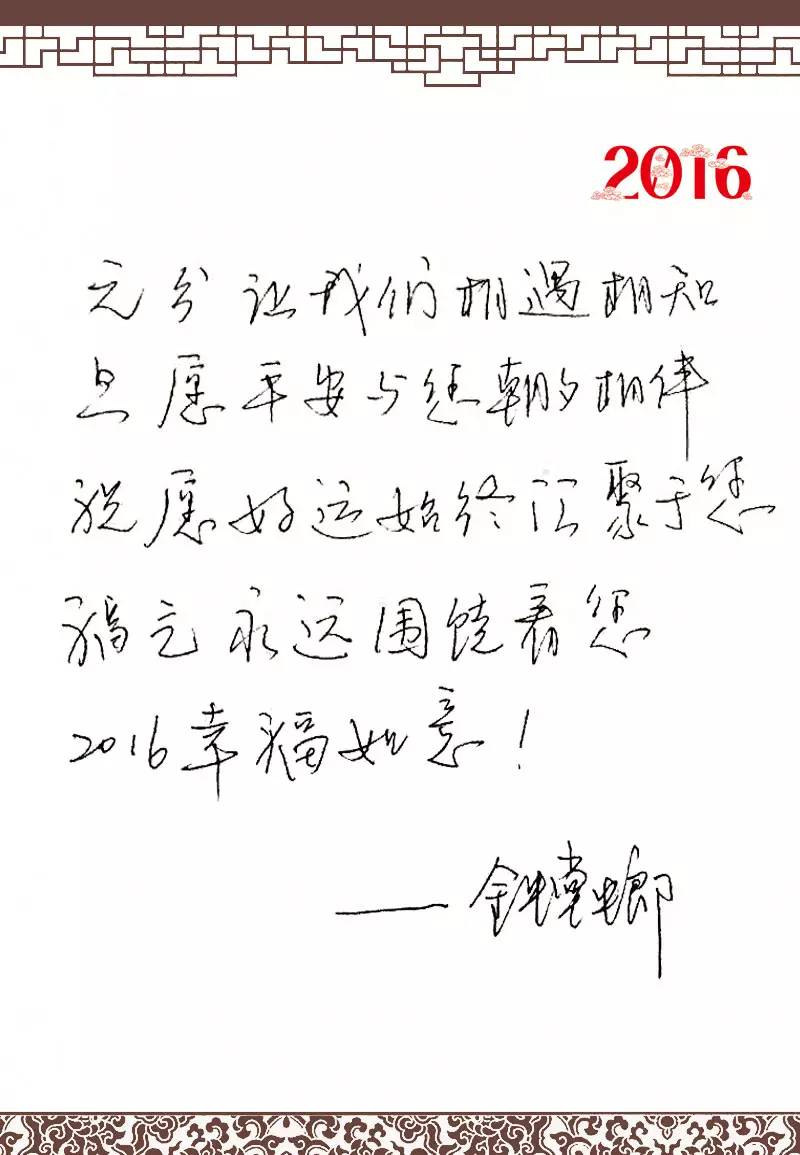 2016
元分让我们相遇相知
旦愿平安与您朝夕相伴
祝愿好运始终汇聚于您
福气永远围饶着您
2016幸福如意！
——金螳螂